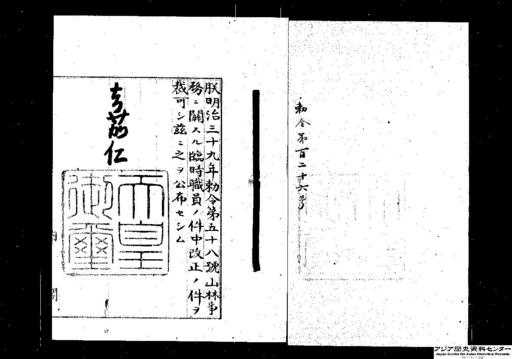 勅令第百二十六号
朕明治三十九年勅令第五十八號山林事
務ニ關スル臨時職員ノ件中改正ノ件ヲ
裁可シ茲ニ之ヲ公布セシム
仁
天皇
御璽
アジア歴史資料センター
Japan Center for Asian Historical Records